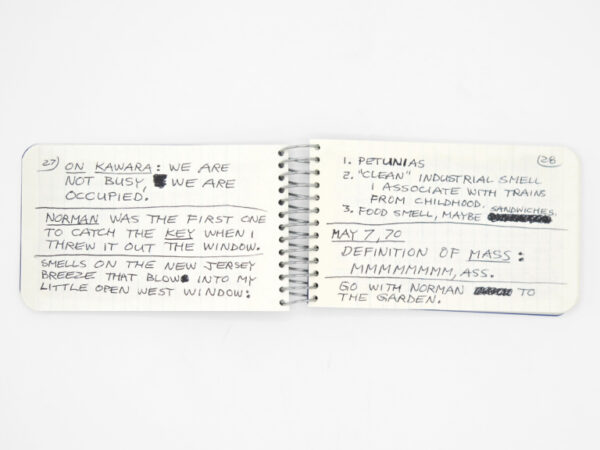 27
ON KAWARA: WE ARE
NOT BUSY, WE ARE
OCCUPIED.
NORMAN WAS THE FIRST ONE
TO CATCH THE KEY WHEN I
THREW IT OUT THE WINDOW.
SMELLS ON THE NEW JERSEY
BREEZE THAT BLOW INTO MY
LITTLE OPEN WEST WINDOW:
28
1. PETUNIAS
2. "CLEAN" INDUSTRIAL SMELL
I ASSOCIATE WITH TRAINS
FROM CHILDHOOD.
3. FOOD SMELL, MAYBE SANDWICHES.
MAY 7, 70
DEFINITION OF MASS:
MMMMMMMM, ASS.
GO WITH NORMAN TO
THE GARDEN.